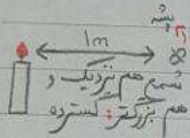 پشه
1m
شمع هم نزدیک و
هم بزرگتر: گسترده